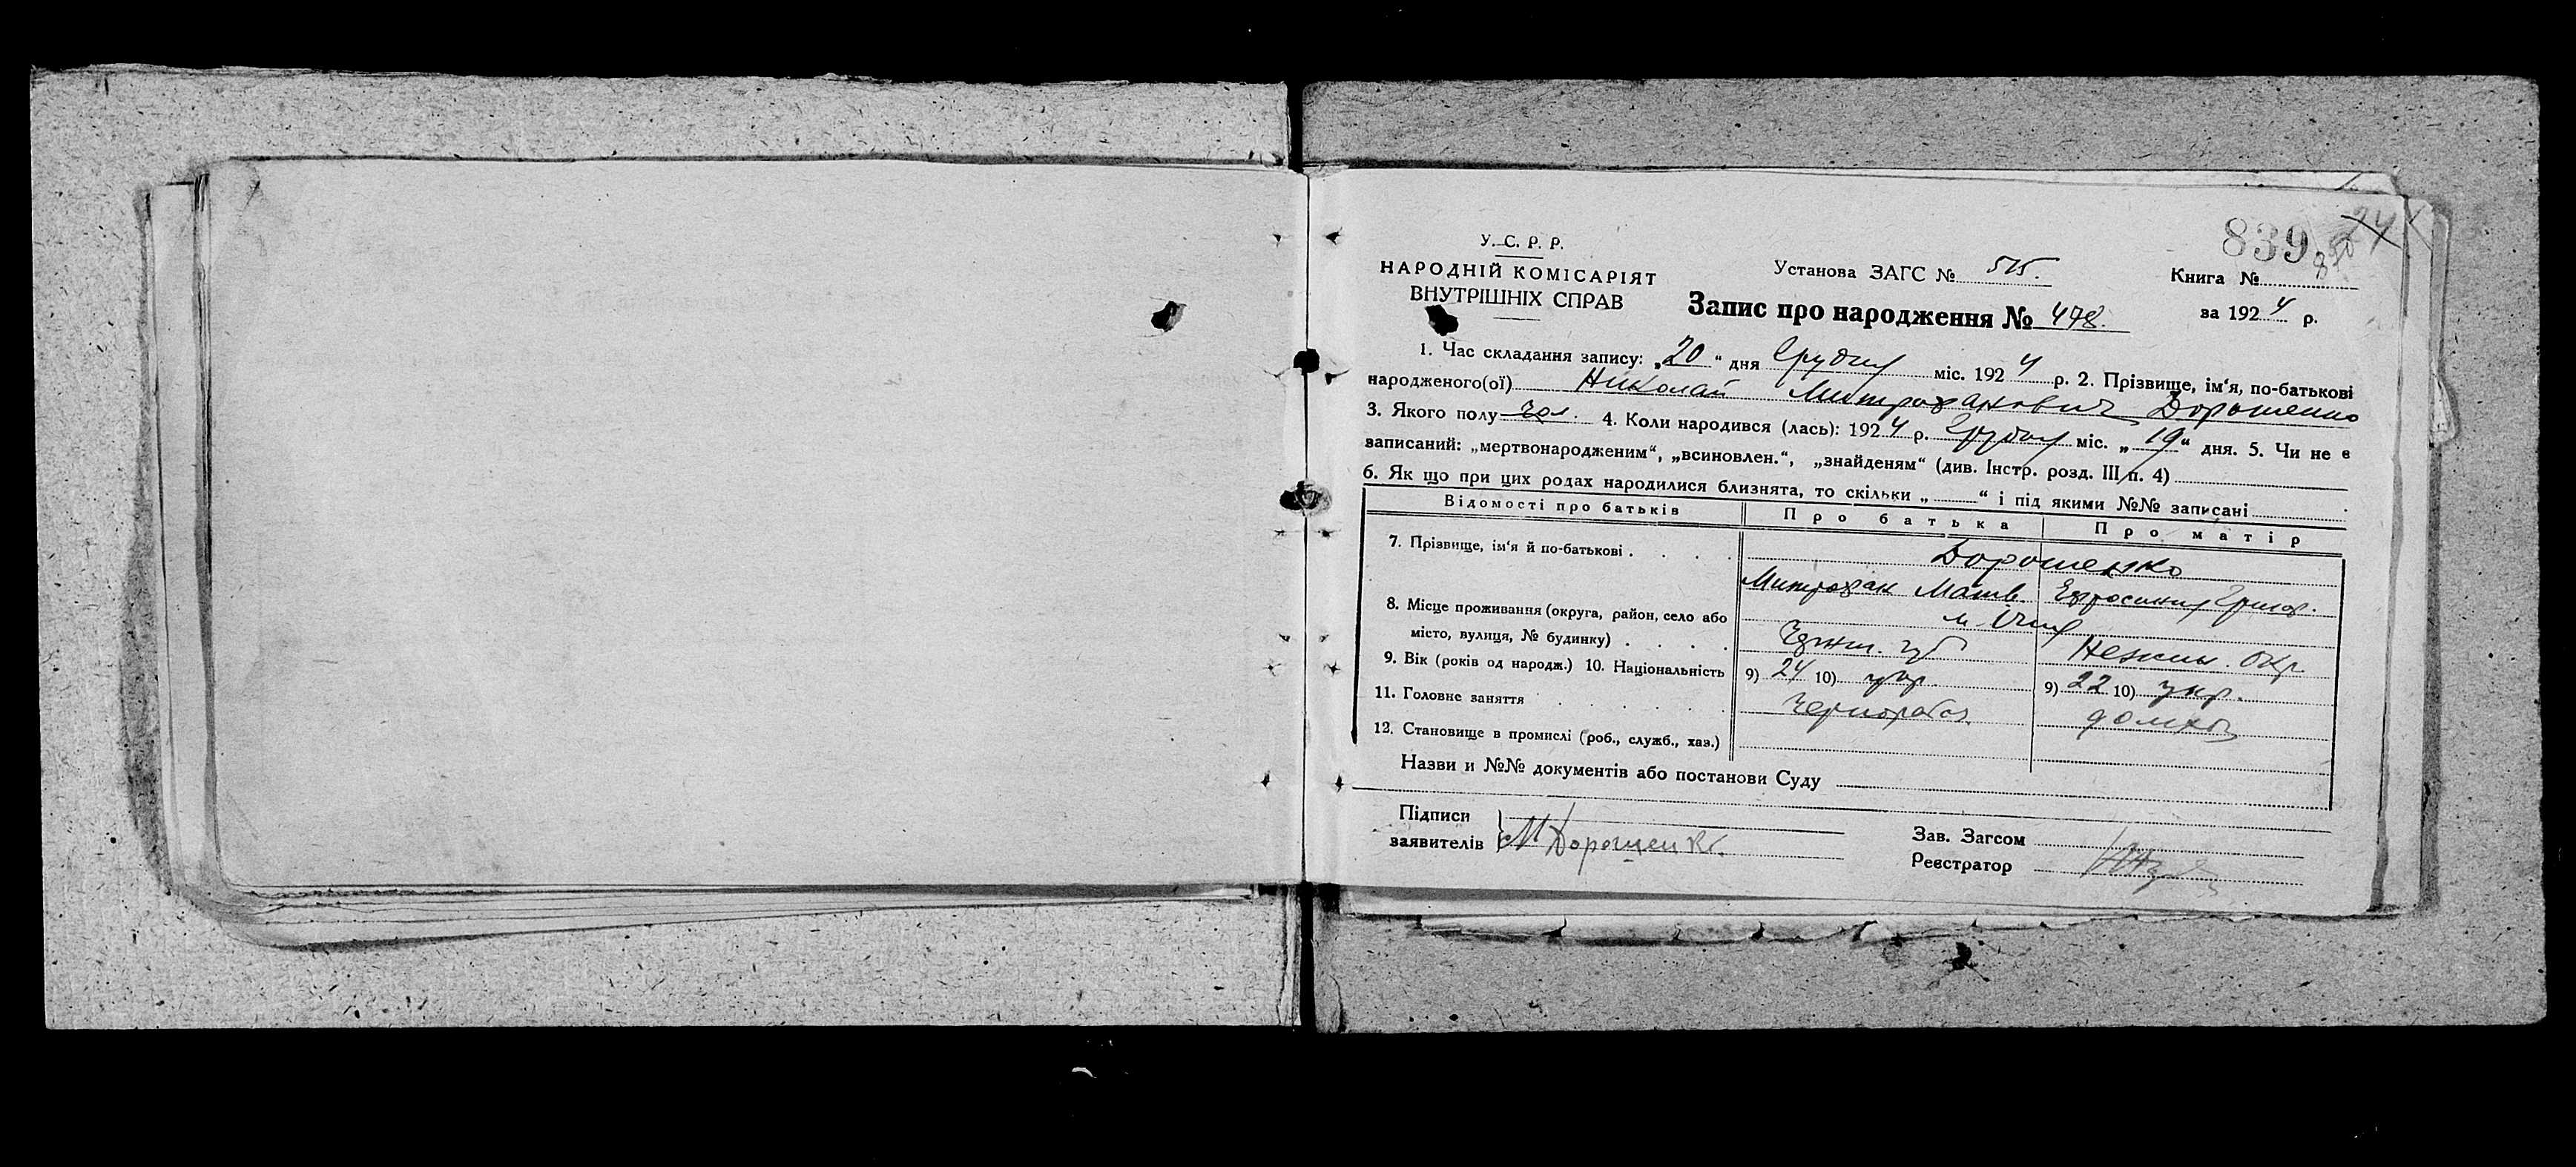 839
24
850
У. С. Р. Р.
НАРОДНІЙ КОМІСАРІЯТ
ВНУТРІШНІХ СПРАВ
Установа ЗАГС № 515.
Книга №
Запис про народження № 478.
за 1924 р.
1. Час складання запису: „20“ дня Грудня міс. 1924 р. 2. Прізвище, ім‘я, по-батькові
народженого(ої) Николай Митрофанович Дорошенко
3. Якого полу чол. 4. Коли народився (лась): 1924 р. Грудня міс. „19“ дня. 5. Чи не є
записаний: „мертвонародженим“, „всиновлен.“, „знайденям“ (див. Інстр. розд. III п. 4)
6. Як що при цих родах народилися близнята, то скільки „ “ і під якими №№ записані
Відомості про батьків Про батька Про матір
7. Прізвище, ім‘я й по-батькові Дорошенко
Митрофан Матв. Ефросиния Григор.
8. Місце проживання (округа, район, село або
місто, вулиця, № будинку) м. Ічня
Нежин. Окр.
9. Вік (років од народж.) 10. Національність 9) 24 10) укр. 9) 22 10) укр.
11. Головне заняття Чернораб. домхоз
12. Становище в промислі (роб., служб., хаз.)
Назви и №№ документів або постанови Суду
Підписи
заявителів М Дорошенко
Зав. Загсом
Реєстратор